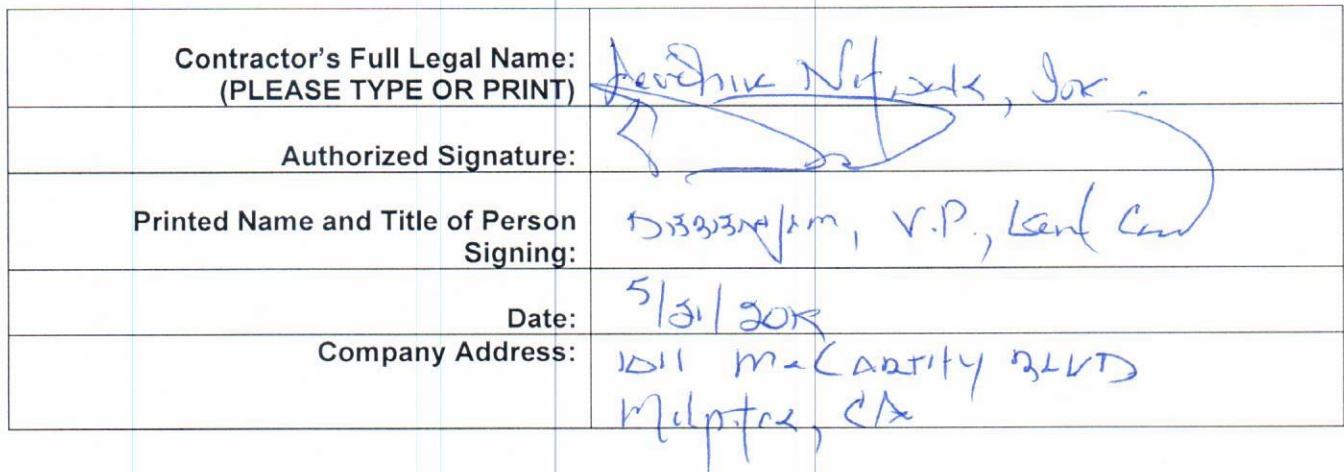 Contractor's Full Legal Name:
(PLEASE TYPE OR PRINT)
Networks, Inc.
Authorized Signature:
Printed Name and Title of Person
Signing:
V.P.,
Date: 5/
Company Address: 1011 McCARTHY BLVD
Milpitas, CA